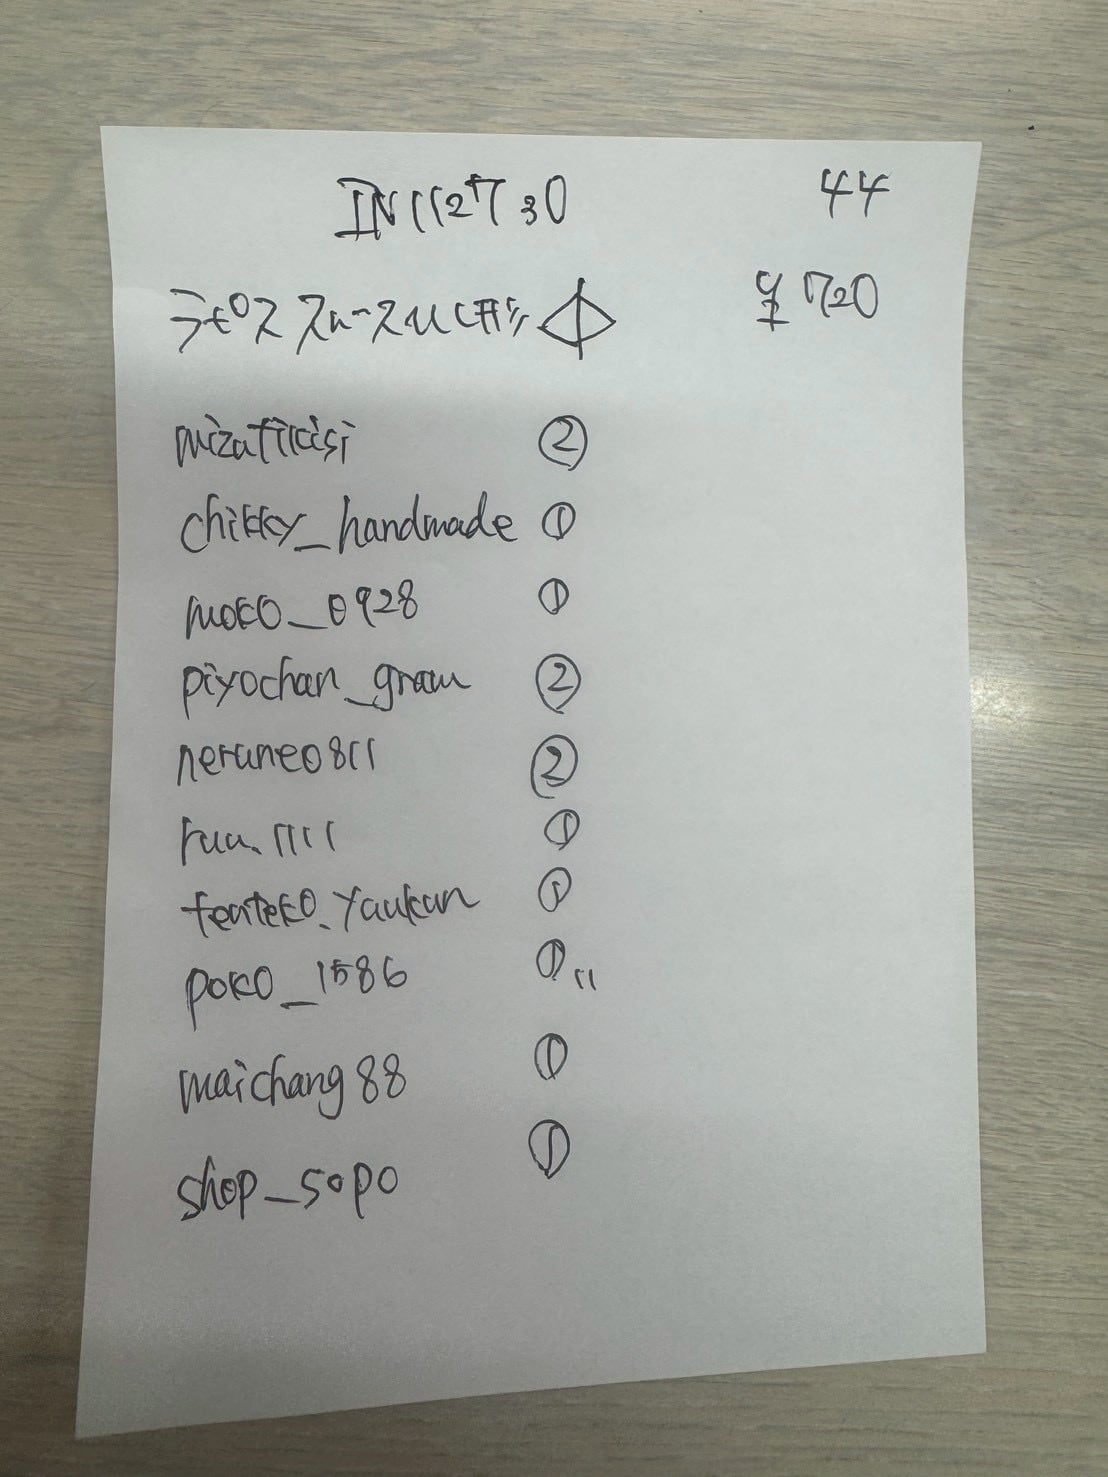 IN112730 44
ラピス スルースひし形 ¥720
mizatikisi ②
chikky_handmade ①
moko_0928 ①
piyochan_gram ②
nerune0811 ②
ruu.1111 ①
tenteko.yaukun ①
poko_1586 ①
maichang88 ①
shop_sopo ①